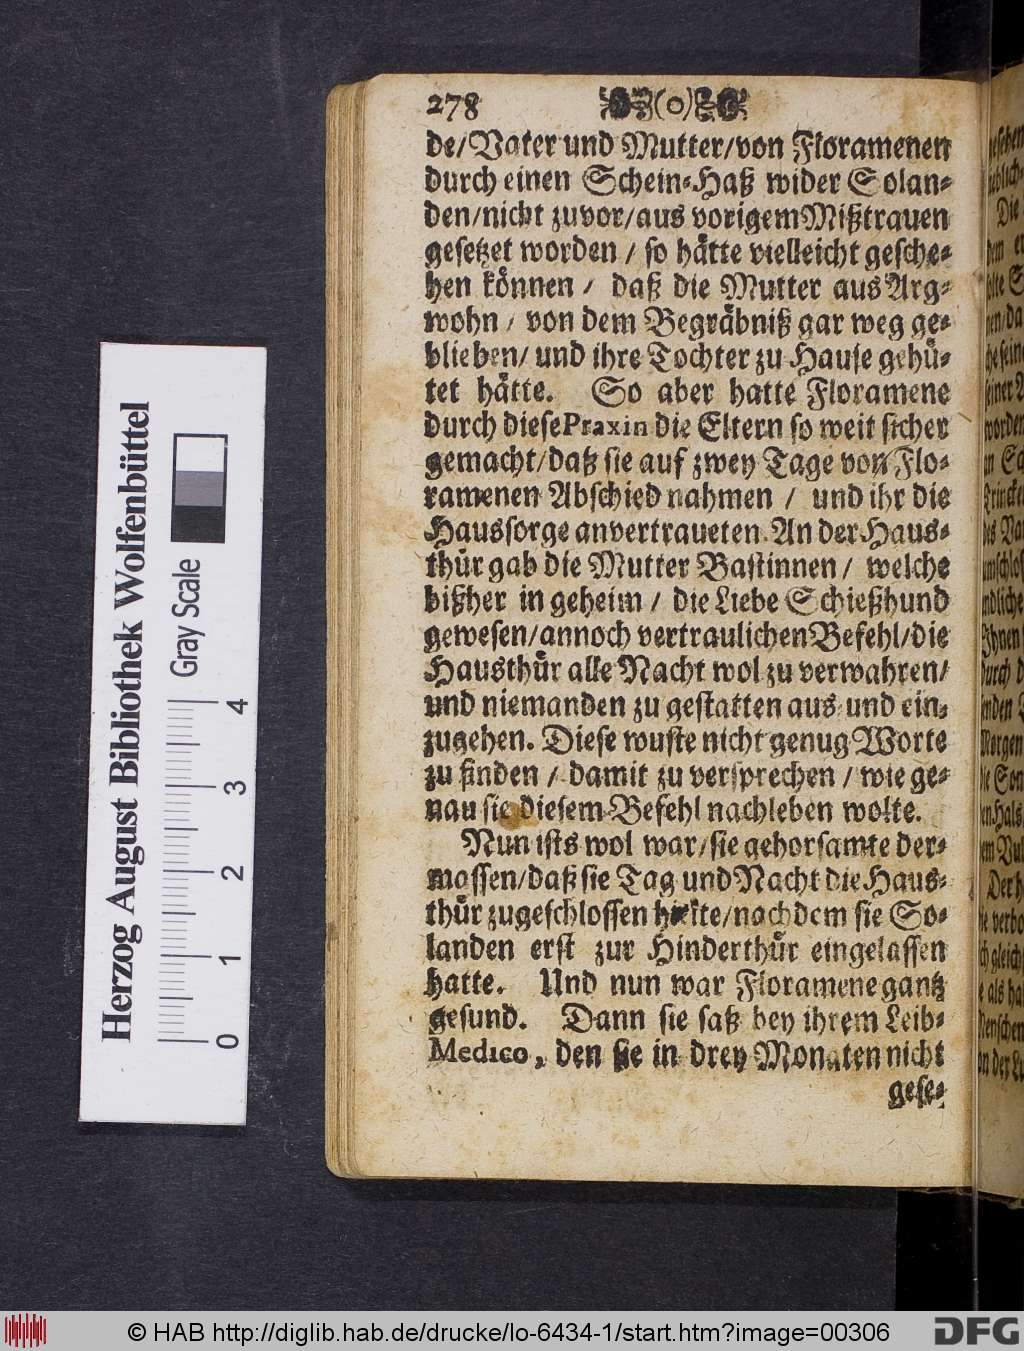 278 (o)
de/Vater und Mutter/von Floramenen
durch einen Schein-Haß wider Solan-
den/nicht zuvor/aus vorigem Mißtrauen
gesetzet worden / so hätte vielleicht gesche-
hen können / daß die Mutter aus Arg-
wohn / von dem Begräbniß gar weg ge-
blieben/ und ihre Tochter zu Hause gehü-
tet hätte. So aber hatte Floramene
durch diese Praxin die Eltern so weit sicher
gemacht/daß sie auf zwey Tage von Flo-
ramenen Abschied nahmen / und ihr die
Haussorge anvertraueten. An der Haus-
thür gab die Mutter Bastinnen / welche
bißher in geheim / die Liebe Schießhund
gewesen/annoch vertraulichen Befehl/die
Hausthür alle Nacht wol zu verwahren/
und niemanden zu gestatten aus und ein-
zugehen. Diese wuste nicht genug Worte
zu finden / damit zu versprechen / wie ge-
nau sie diesem Befehl nachleben wolte.
Nun ists wol war/sie gehorsamte der-
massen/daß sie Tag und Nacht die Haus-
thür zugeschlossen hielte/nachdem sie So-
landen erst zur Hinderthür eingelassen
hatte. Und nun war Floramene gantz
gesund. Dann sie saß bey ihrem Leib-
Medico, den sie in drey Monaten nicht
gese-
Herzog August Bibliothek Wolfenbüttel
Gray Scale
0 1 2 3 4
© HAB http://diglib.hab.de/drucke/lo-6434-1/start.htm?image=00306
DFG